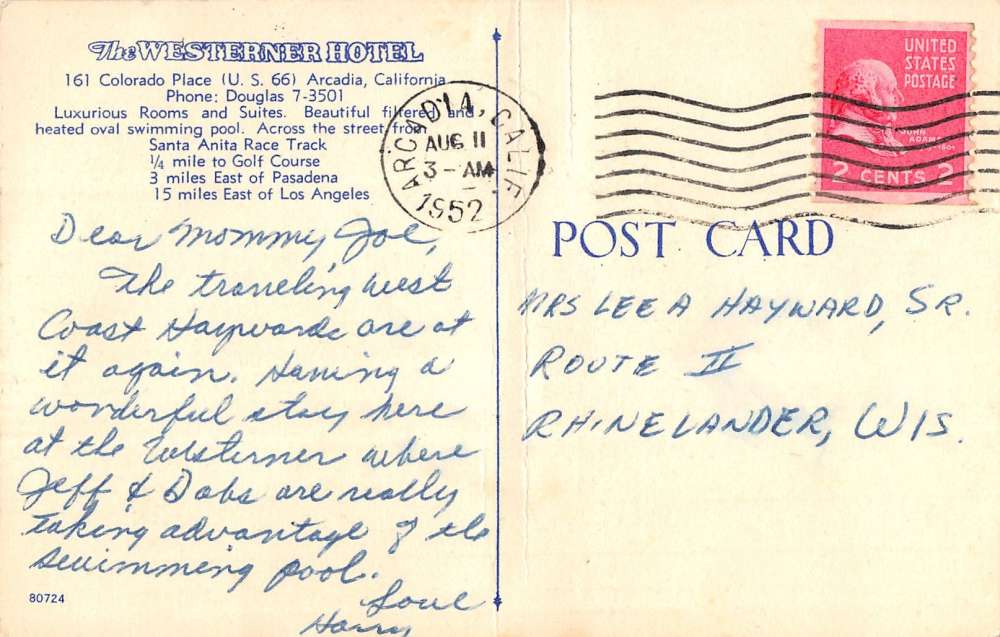 The WESTERNER HOTEL
161 Colorado Place (U. S. 66) Arcadia, California
Phone: Douglas 7-3501
Luxurious Rooms and Suites. Beautiful filtered and
heated oval swimming pool. Across the street from
Santa Anita Race Track
1/4 mile to Golf Course
3 miles East of Pasadena
15 miles East of Los Angeles
ARCADIA, CALIF.
AUG 11
3 - AM
1952
UNITED
STATES
POSTAGE
JOHN
ADAMS
2 CENTS 2
POST CARD
Dear Mommy Joe,
The traveling west
Coast Haywards are at
it again. Having a
wonderful stay here
at the Westerner where
Jeff & Babs are really
taking advantage of the
swimming pool.
Love
Harry
MRS LEE A HAYWARD, SR.
ROUTE II
RHINELANDER, WIS.
80724